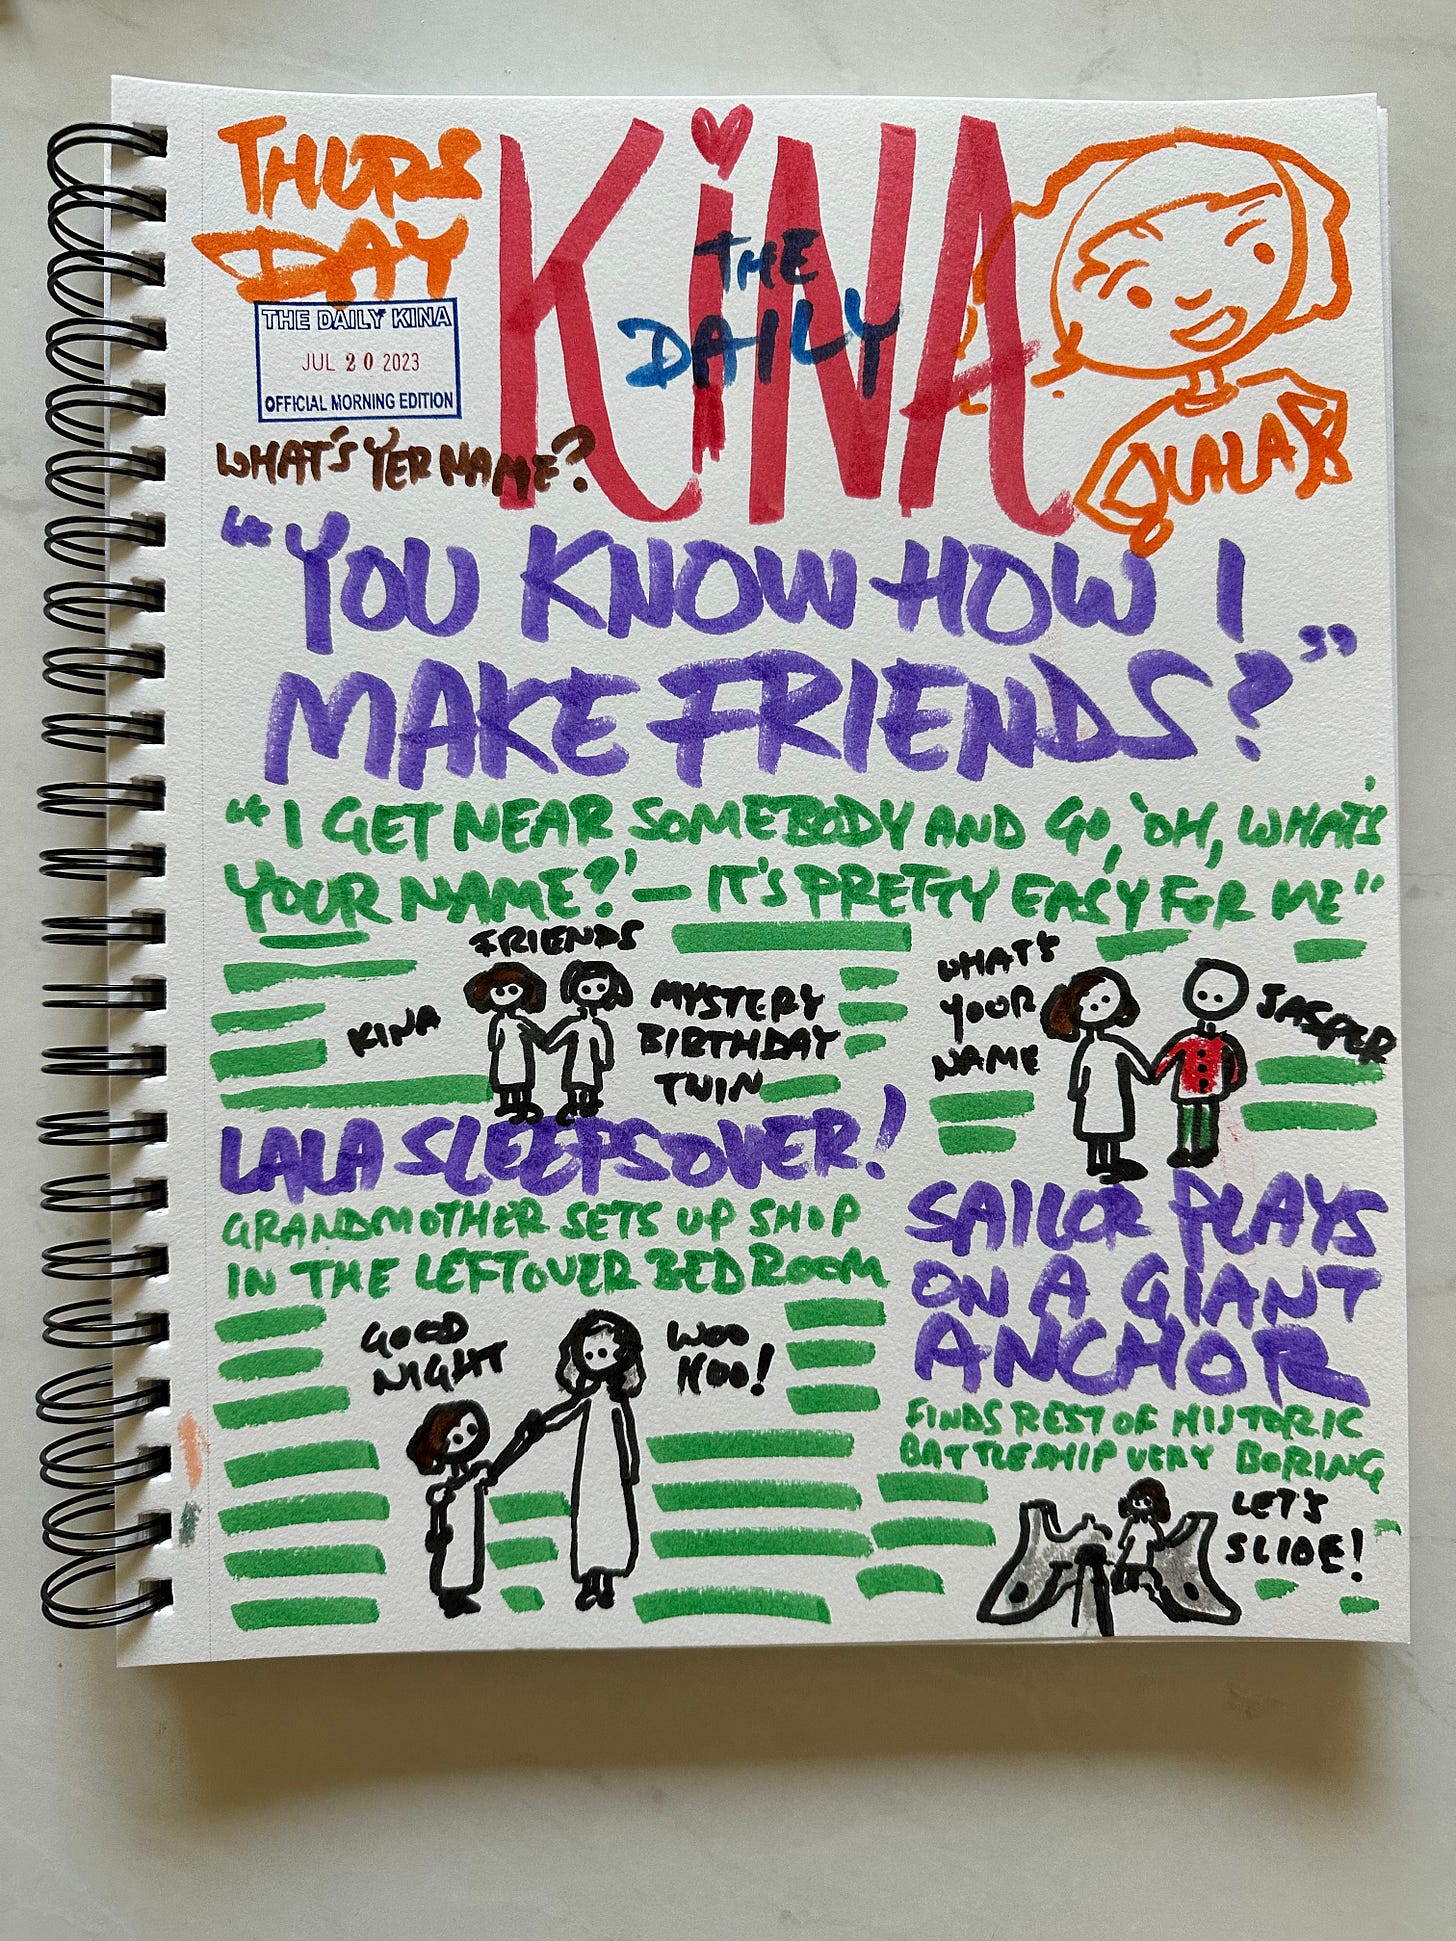 THURS
DAY
THE DAILY KINA
JUL 20 2023
OFFICIAL MORNING EDITION
WHAT'S YER NAME?
KiNA
THE
DAILY
"YOU KNOW HOW I
MAKE FRIENDS?"
"I GET NEAR SOMEBODY AND GO, 'OH, WHAT'S
YOUR NAME?' — IT'S PRETTY EASY FOR ME"
FRIENDS
KINA
MYSTERY
BIRTHDAY
TWIN
WHAT'S
YOUR
NAME
JASPER
LALA SLEEPSOVER!
GRANDMOTHER SETS UP SHOP
IN THE LEFTOVER BEDROOM
GOOD
NIGHT
WOO
HOO!
SAILOR PLAYS
ON A GIANT
ANCHOR
FINDS REST OF HISTORIC
BATTLESHIP VERY BORING
LET'S
SLIDE!